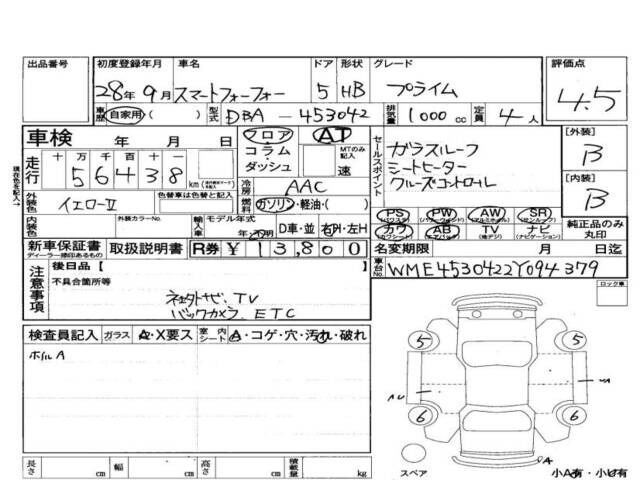 出品番号 初度登録年月 車名 ドア 形状 グレード 評価点
28年9月 スマートフォーフォー 5 HB プライム 4.5
車歴 自家用( ) 型式 DBA-453042 排気量 1000cc 定員 4人
車検 年 月 日 フロア コラム・ダッシュ AT MTのみ記入 速
セールスポイント ガラスルーフ
シートヒーター
クルーズコントロール
[外装] B
[内装] B
走行 十万千百十 56438 km
冷房 AAC
外装色 イエローII 色替車は色替と記入 燃料 ガソリン・軽油・( )
内装色 外装カラーNo. 輸入車 モデル年式 年・不明 D車・並 右H・左H
PS (パワステ) PW (パワーウィンド) AW (アルミホイル) SR (サンルーフ)
カワ (カワシート) AB (エアバック) TV (地デジ) ナビ (ナビゲーション)
純正品のみ丸印
新車保証書 ディーラー捺印あるもの 取扱説明書 R券 ¥13,800 名変期限 月 日迄
車台No. WME4530422Y094379
現在色を記入→
注意事項 後日品[ ]
不具合箇所等
バックカメラ、ETC
ロック車
検査員記入 ガラス A・X要ス 室内シート A・コゲ・穴・汚れ・破れ
ホイルA
5 5
6 6
A
長さ cm 幅 cm 高さ cm 積載量 kg
スペア 小A有・小U有